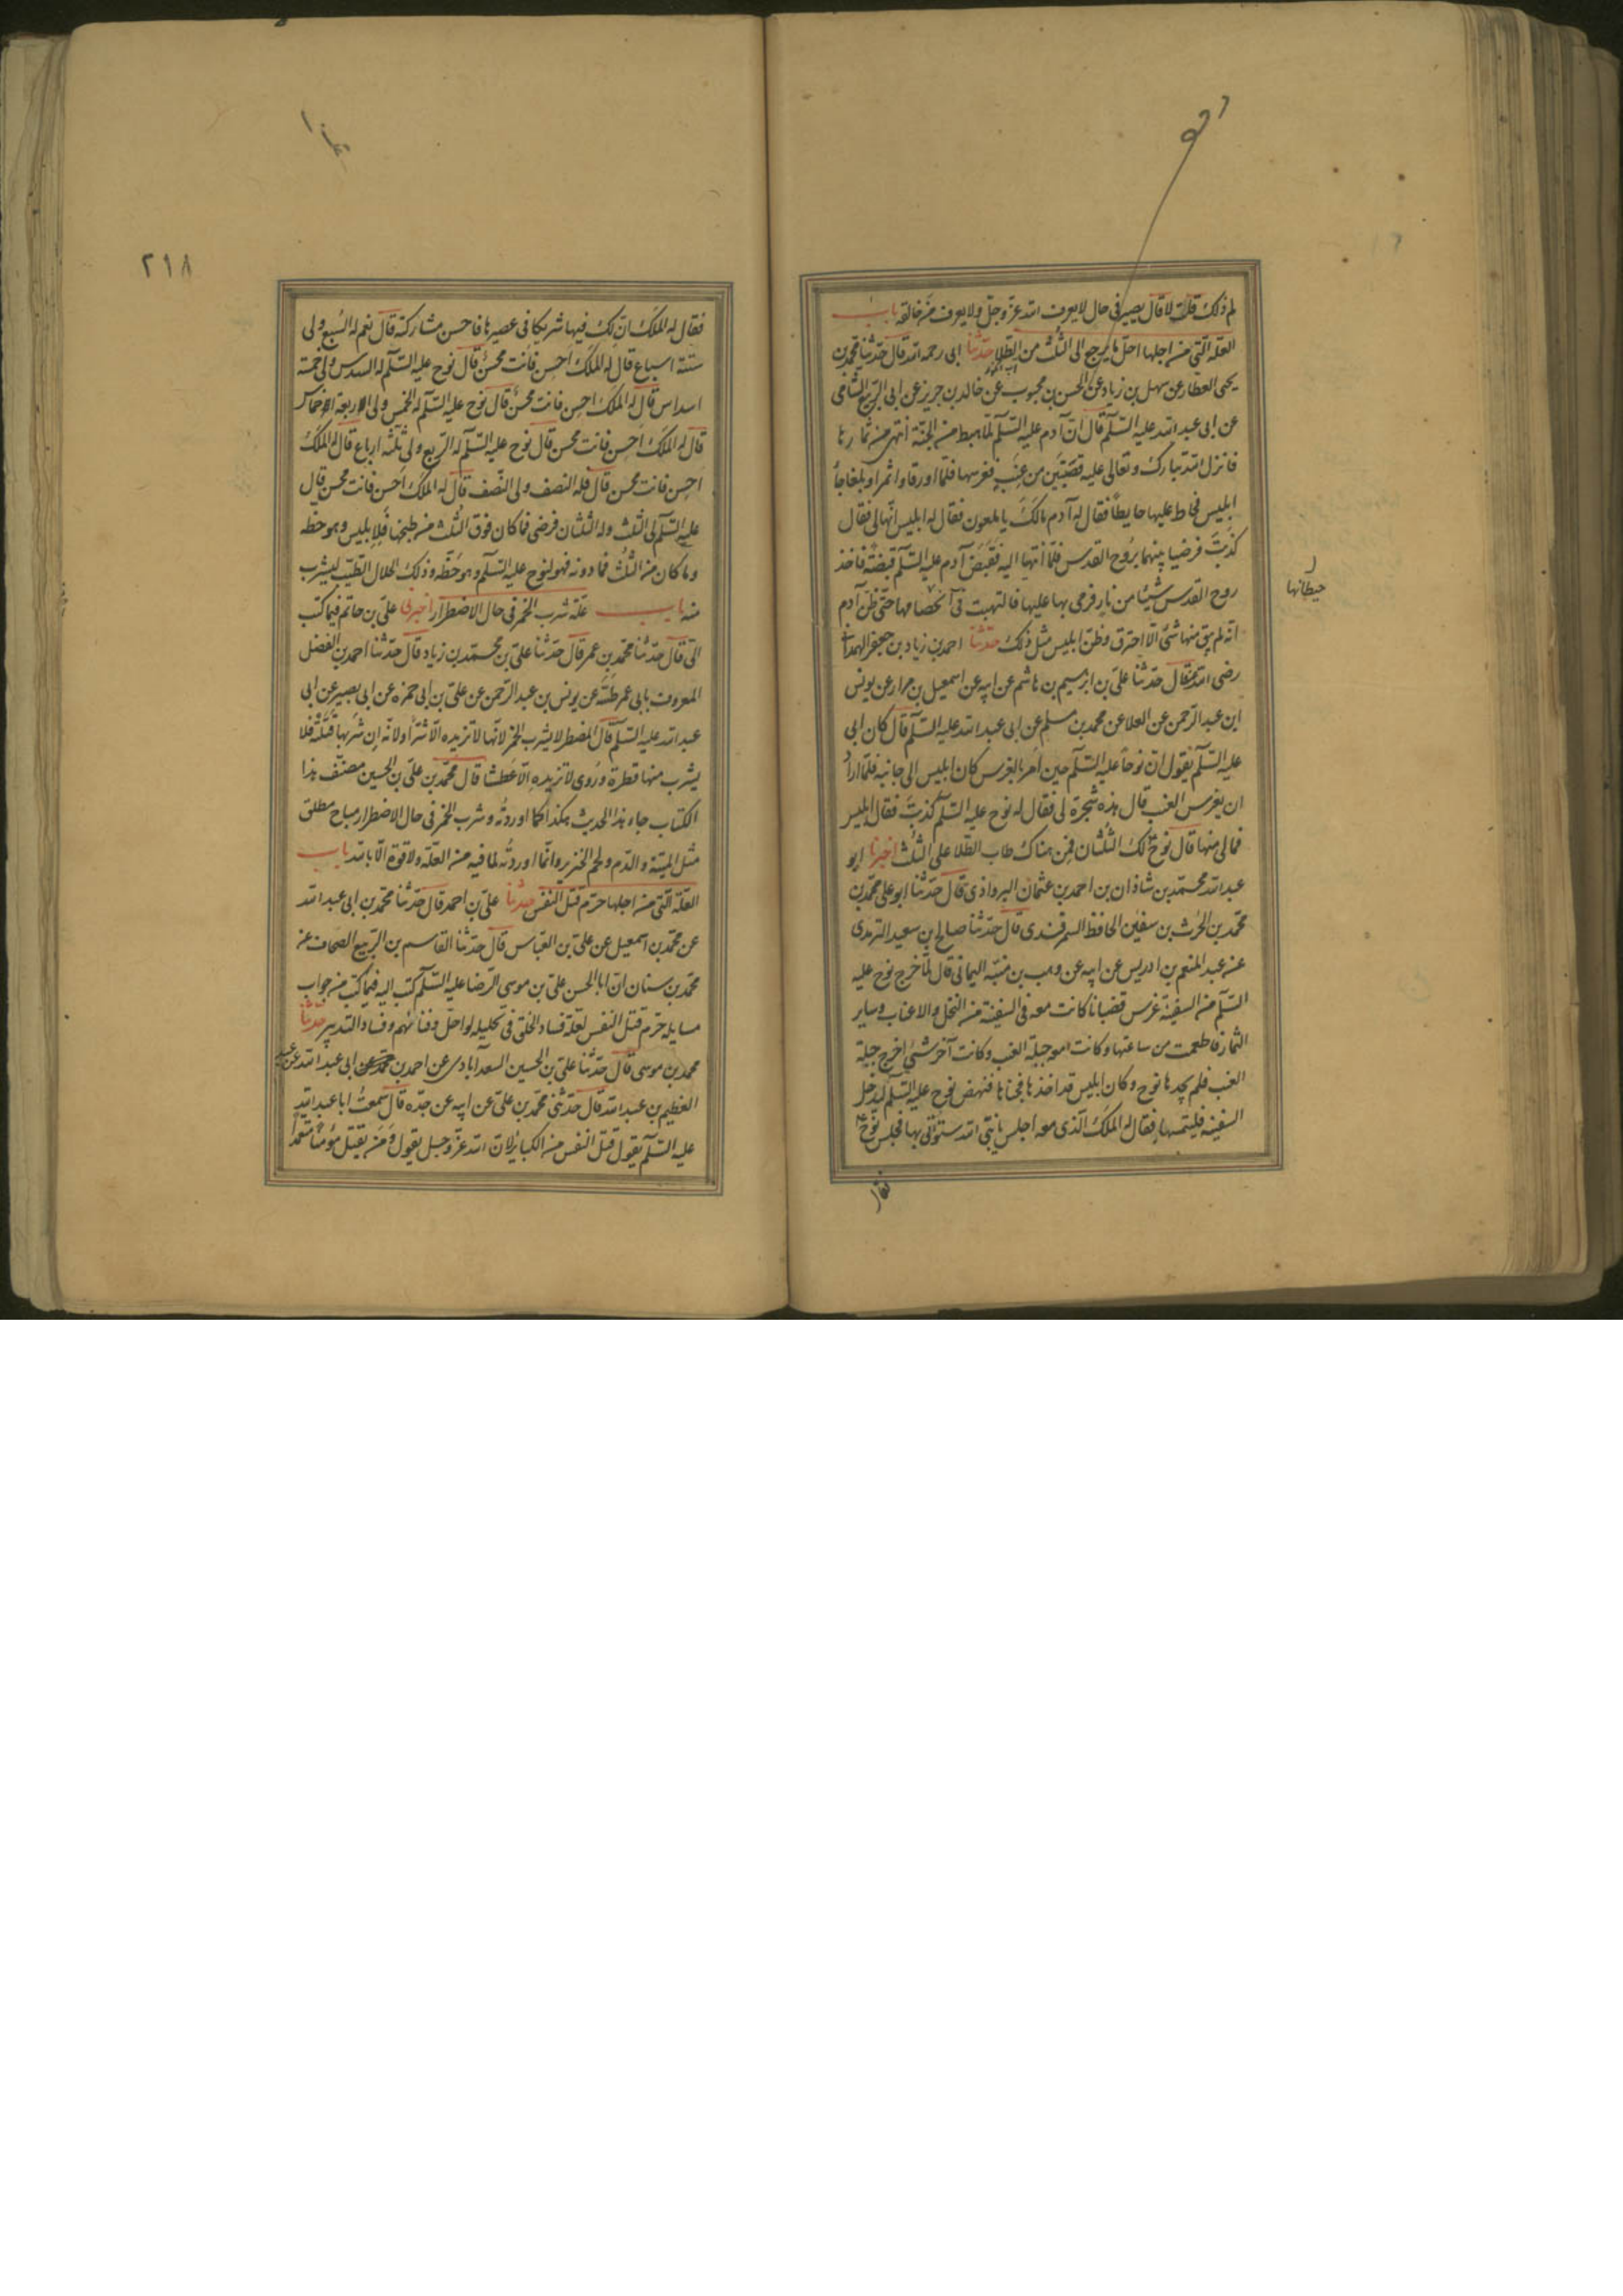 لم ذلك قلت لا قال يصير فى حال لا يعرف الله عزّ وجلّ ولا يعرف من خالقه باب
العلّة الّتى من اجلها احلّ ما يرجع الى الثّلث من الطّلا حدّثنا ابى رحمه الله قال حدّثنا محمّد بن
يحيى العطار عن سهل بن زياد عن الحسن بن محبوب عن خالد بن جرير عن ابى الرّبيع الشامى
عن ابى عبد الله عليه السّلم قال انّ آدم عليه السّلم لمّا اهبط من الجنّة اشتهى من ثمارها
فانزل الله تبارك وتعالى عليه قضيبين من عنب فغرسهما فلمّا اورقا واثمرا وبلغا جآء
ابليس فحاط عليهما حايطًا فقال له آدم مالك يا ملعون فقال له ابليس انّهما لى فقال
كذبت فرضيا بينهما بروح القدس فلمّا انتهيا اليه فقصّ آدم عليه السّلم قصّته فاخذ
روح القدس شيئًا من نار فرمى بها عليهما فالتهبت فى اغصانهما حتّى ظنّ آدم
انّه لم يبق منهما شئ الّا احترق وظنّ ابليس مثل ذلك حدّثنا احمد بن زياد بن جعفر الهمدانى
رضى الله عنه قال حدّثنا علىّ بن ابرهيم بن هاشم عن ابيه عن اسمعيل بن مرار عن يونس
ابن عبد الرّحمن عن العلا عن محمد بن مسلم عن ابى عبد الله عليه السّلم قال كان ابى
عليه السّلم يقول انّ نوحًا عليه السّلم حين امر بالغرس كان ابليس الى جانبه فلمّا اراد
ان يغرس العنب قال هذه شجرة لى فقال له نوح عليه السّلم كذبت فقال ابليس
فمالى منها قال نوح لك الثّلثان فمن هناك طاب الطّلا على الثّلث اخبرنا ابو
عبد الله محمّد بن شاذان بن احمد بن عثمان البروادى قال حدّثنا ابو على محمّد بن
محمّد بن الحرث بن سفين الحافظ السمرقندى قال حدّثنا صالح بن سعيد الترمذى
عن عبد المنعم بن ادريس عن ابيه عن وهب بن منبّه اليمانى قال لمّا خرج نوح عليه
السّلم من السفينة غرس قضبانا كانت معه فى السفينة من النخل والاعناب وساير
الثمار فاطعمت من ساعتها وكانت معه حبلة العنب وكانت آخر شئ اخرج حبلة
العنب فلم يجدها نوح وكان ابليس قد اخذها فخباها فنهض نوح عليه السّلم ليدخل
السفينة فليتمسها فقال له الملك الّذى معه اجلس يا نبىّ الله ستؤتى بها فجلس نوح ع
فقال
حيطانها
٢١٨
فقال له الملك انّ لك فيها شريكا فى عصيرها فاحسن مشاركته قال نعم له السّبع ولى
ستّة اسباع قال له الملك احسن فانت محسن قال نوح عليه السّلم له السدس ولى خمسة
اسداس قال له الملك احسن فانت محسن قال نوح عليه السّلم له الخمس ولى الاربعة الاخماس
قال له الملك احسن فانت محسن قال نوح عليه السّلم له الرّبع ولى ثلثة ارباع قال له الملك
احسن فانت محسن قال فله النصف ولى النّصف قال له الملك احسن فانت محسن قال
عليه السّلم لى الثلث وله الثّلثان فرضى فما كان فوق الثّلث من طبخها فلابليس وهو حظه
وما كان من الثّلث فما دونه فهو لنوح عليه السّلم وهو حظّه وذلك الحلال الطيّب ليشرب
منه باب علّة شرب الخمر فى حال الاضطرار اخبرنى علىّ بن حاتم فيما كتب
الىّ قال حدّثنا محمّد بن عمر قال حدّثنا علىّ بن محمّد بن زياد قال حدّثنا احمد بن الفضل
المعروف بابى عمر طيّبة عن يونس بن عبد الرّحمن عن علىّ بن ابى حمزه عن ابى بصير عن ابى
عبد الله عليه السّلم قال المضطر لا يشرب الخمر لانّها لا تزيده الّا شرّا ولانّه ان شربها قتلته فلا
يشرب منها قطرة وروى لا تزيده الّا عطشا قال محمّد بن علىّ بن الحسين مصنّف هذا
الكتاب جاء هذا الحديث هكذا كما اوردته وشرب الخمر فى حال الاضطرار مباح مطلق
مثل الميتة والدّم ولحم الخنزير وانّما اوردته لما فيه من العلّة ولا قوّة الّا بالله باب
العلّة الّتى من اجلها حرّم قتل النّفس حدّثنا علىّ بن احمد قال حدّثنا محمّد بن ابى عبد الله
عن محمّد بن اسمعيل عن علىّ بن العبّاس قال حدّثنا القاسم بن الرّبيع الصّحاف عن
محمّد بن سنان انّ ابا الحسن علىّ بن موسى الرّضا عليه السّلم كتب اليه فيما كتب من جواب
مسايله حرّم قتل النّفس لعلّة فساد الخلق فى تحليله لو احلّ وفنائهم وفساد التّدبير حدّثنا
محمد بن موسى قال حدّثنا علىّ بن الحسين السعدآبادى عن احمد بن ابى عبد الله عن عبد
العظيم بن عبد الله قال حدّثنى محمّد بن علىّ عن ابيه عن جدّه قال سمعت ابا عبد الله
عليه السّلم يقول قتل النّفس من الكباير لانّ الله عزّ وجل يقول وَمَن يقتل مؤمنًا متعمّدًا